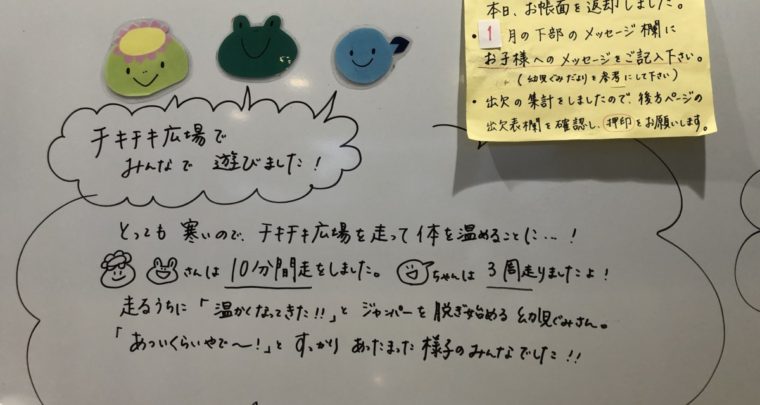 本日、お帳面を返却しました。
・1月の下部のメッセージ欄に
お子様へのメッセージをご記入下さい。
(幼児ぐみだよりを参考にして下さい)
・出欠の集計をしましたので、後方ページの
出欠表欄を確認し、押印をお願いします。
チキチキ広場で
みんなで遊びました!
とっても寒いので、チキチキ広場を走って体を温めることに…!
さんは10分間走をしました。ちゃんは3周走りましたよ!
走るうちに「温かくなってきた!!」とジャンパーを脱ぎ始める幼児ぐみさん。
「あついくらいやで〜!」とすっかりあったまった様子のみんなでした!!